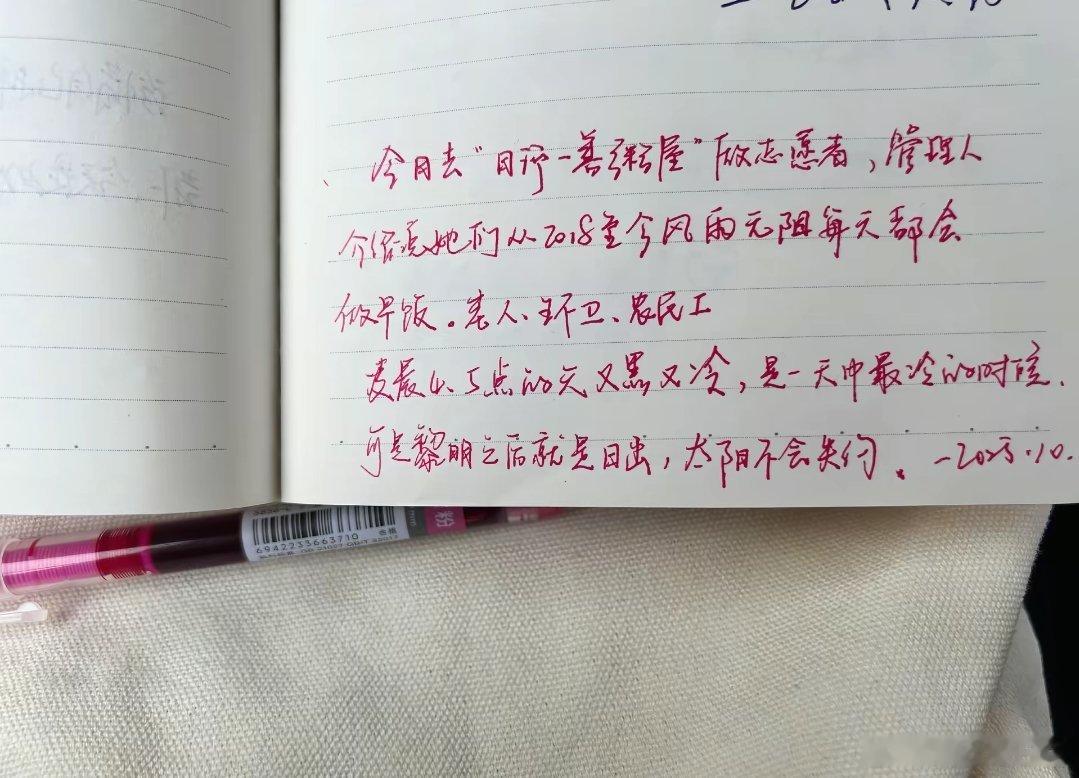 今日去“日行一善粥屋”做志愿者，管理人
介绍说她们从2018至今风雨无阻每天都会
做早饭。老人、环卫、农民工
凌晨4、5点的天又黑又冷，是一天中最冷的时候.
可是黎明之后就是日出，太阳不会失约。-2025.10.
粉
6942233663710